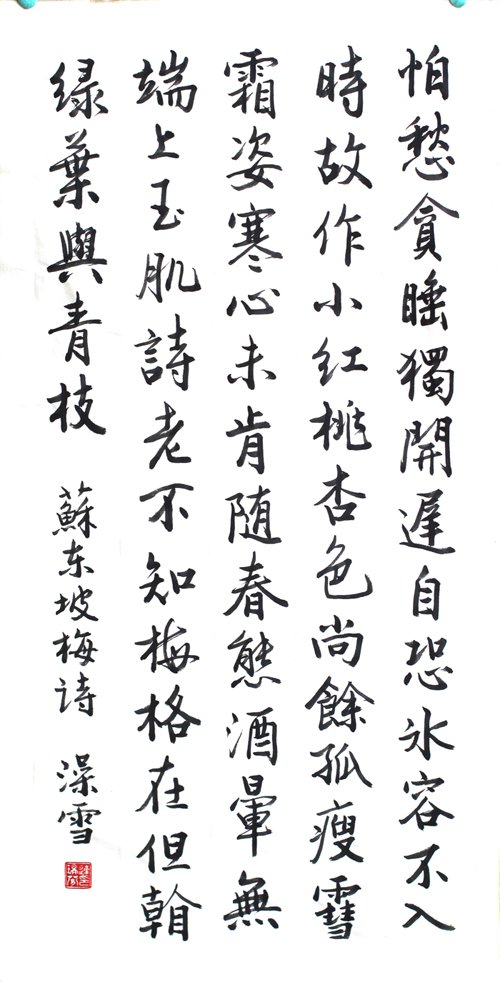 怕愁貪睡獨開遲自恐冰容不入
時故作小红桃杏色尚餘孤瘦䨮
霜姿寒心未肯随春態酒暈無
端上玉肌詩老不知梅格在但翰
绿葉與青枝
蘇东坡梅詩 澡雪